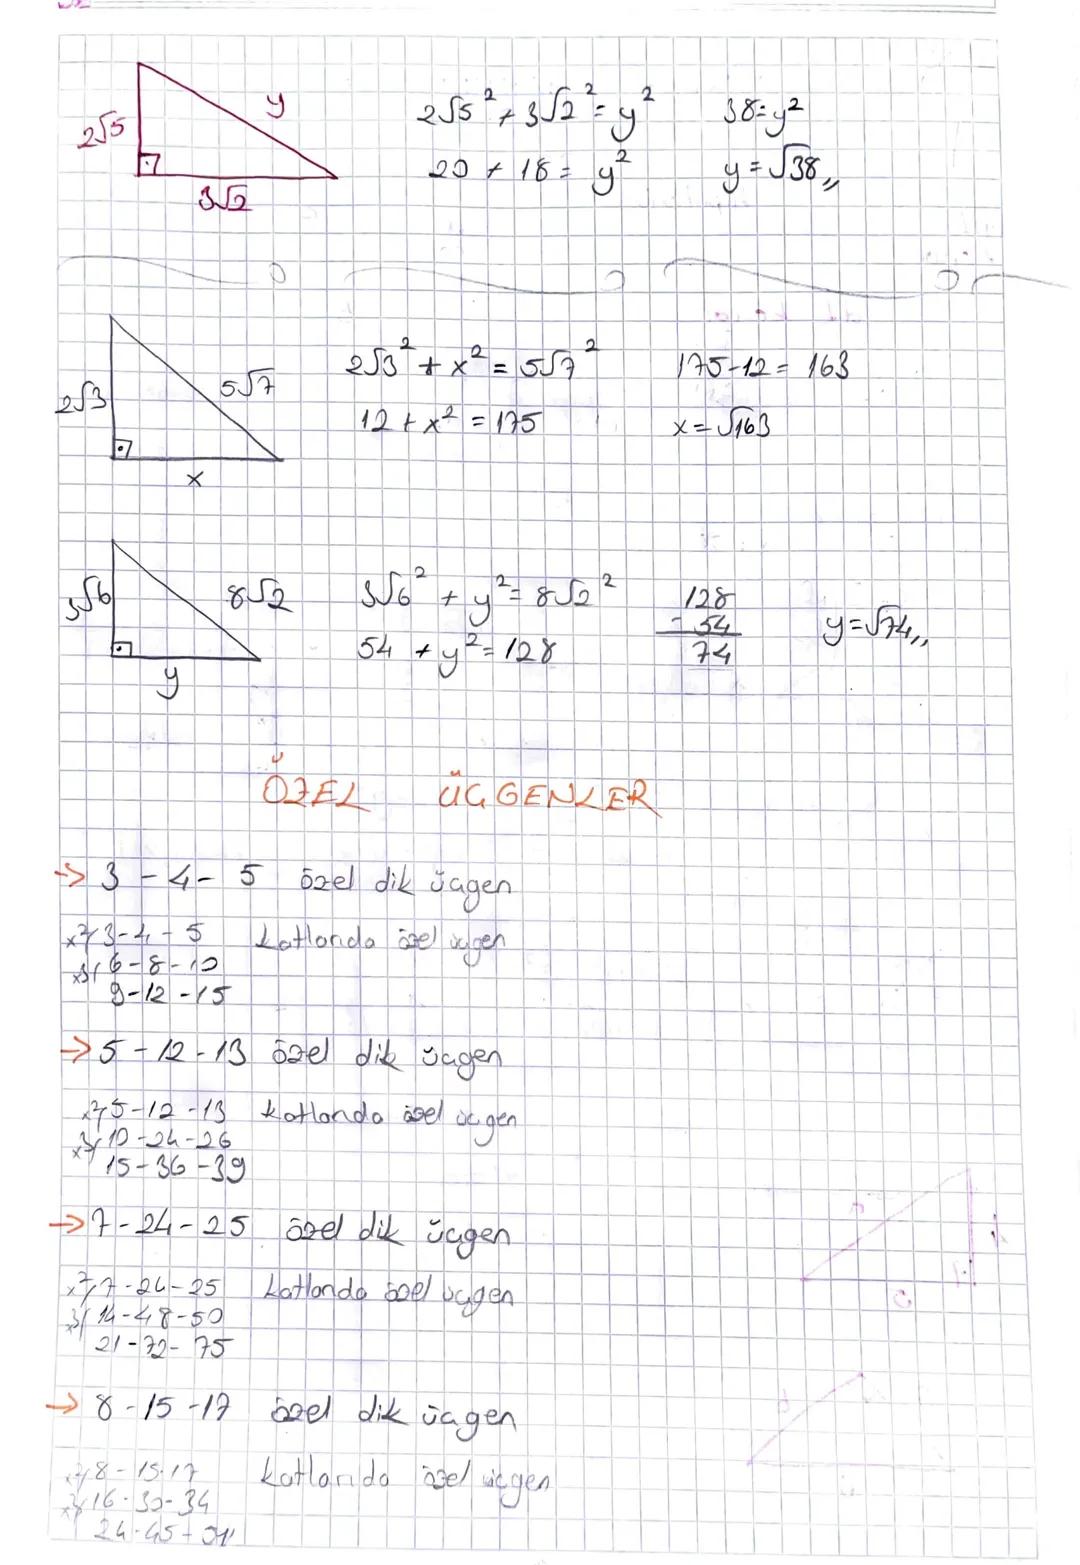 2√5
y
3√2
2√5² + 3√2² = y²
20 + 18 = y²
38 = y²
y = √38,,
2√3
5√7
x
2√3² + x² = 5√7²
12 + x² = 175
175-12 = 163
x = √163
3√6
8√2
y
3√6² + y² = 8√2²
54 + y² = 128
128
- 54
74
y = √74,,
ÖZEL ÜÇGENLER
→ 3 - 4 - 5 özel dik üçgen
x2 3-4-5 Katlarıda özel üçgen
x3 6-8-10
9-12-15
→ 5-12-13 özel dik üçgen
x2 5-12-13 Katlarıda özel üçgen
x3 10-24-26
15-36-39
→ 7-24-25 özel dik üçgen
x2 7-24-25 Katlarıda özel üçgen
x3 14-48-50
21-72-75
→ 8-15-17 özel dik üçgen
x2 8-15-17 Katlarıda özel üçgen
x3 16-30-34
24-45-51